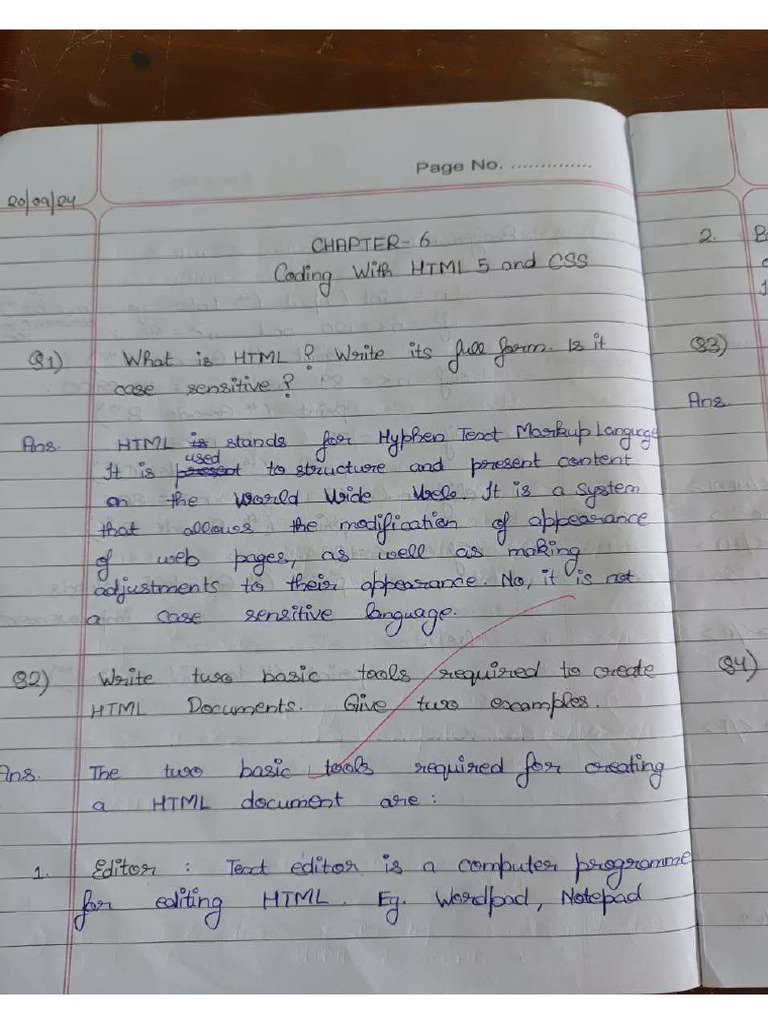 Page No. ..............
20/09/24
CHAPTER-6
Coding With HTML 5 and CSS
Q1) What is HTML? Write its full form. Is it
case sensitive?
Ans. HTML is stands for Hyphen Text Markup Language
used
It is present to structure and present content
on the World Wide Web. It is a system
that allows the modification of appearance
of web pages, as well as making
adjustments to their appearance. No, it is not
a case sensitive language.
Q2) Write two basic tools required to create
HTML Documents. Give two examples.
Ans. The two basic tools required for creating
a HTML document are:
1. Editor : Text editor is a computer programme
for editing HTML. Eg. Wordpad, Notepad
2.
Q3)
Ans.
Q4)